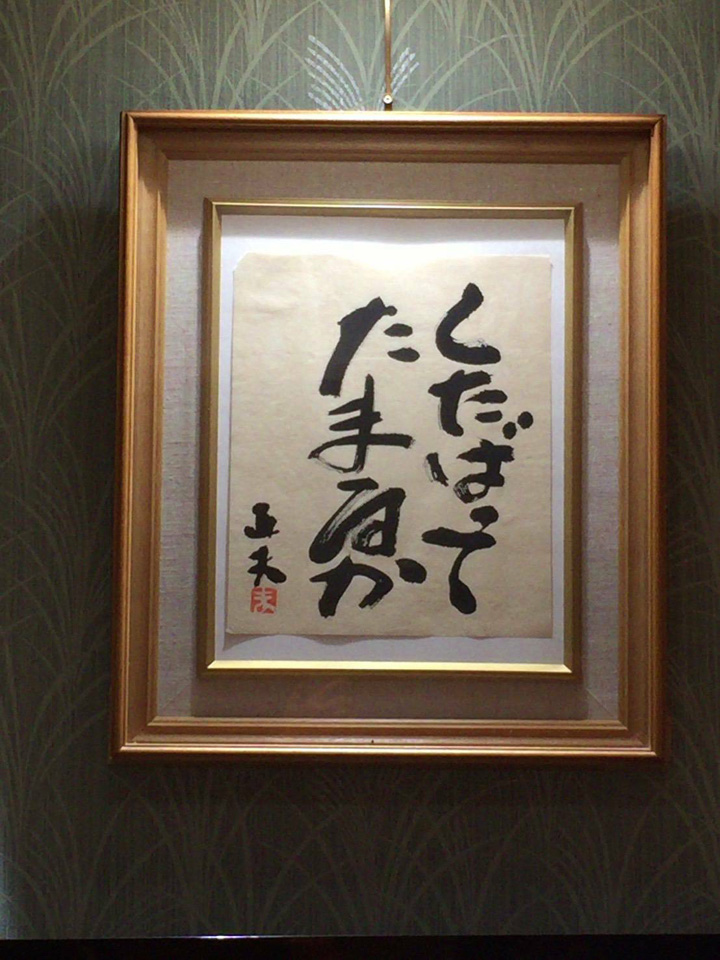 くたばって
たまるか
正夫
ま